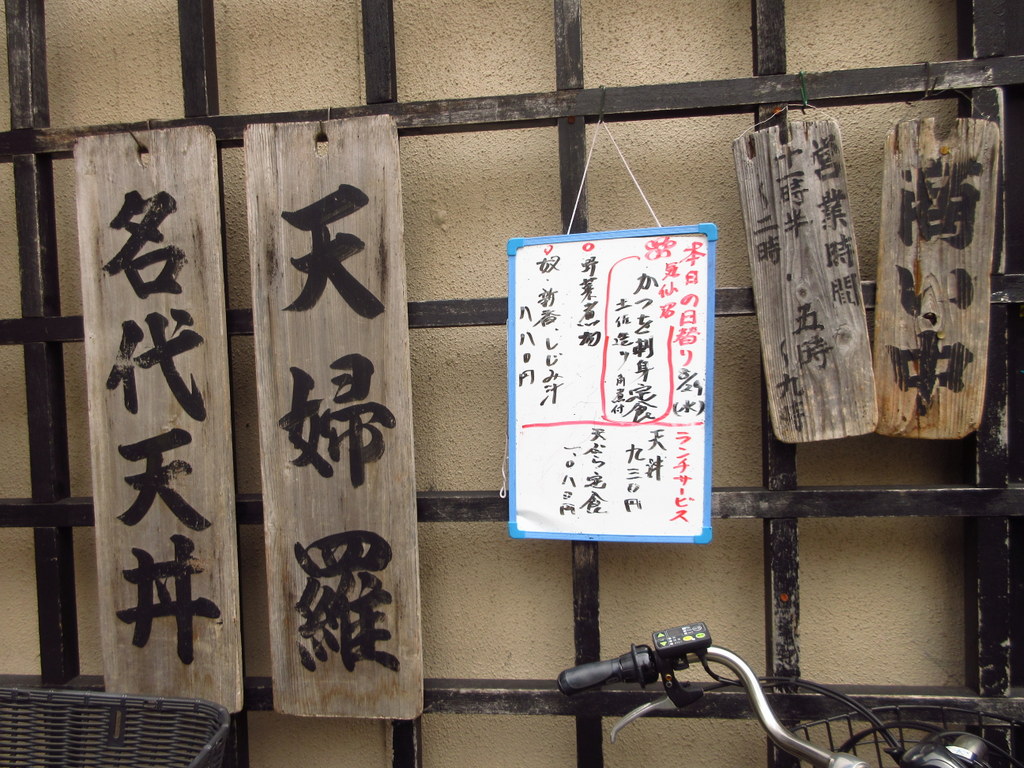 商い中
営業時間
十一時半〜二時
・五時〜九時
本日の日替り 8/29(水)
気仙沼
かつを刺身定食
土佐造り 角煮付
野菜煮物
奴 新香、しじみ汁
八八〇円
ランチサービス
天丼
九三〇円
天ぷら定食
一、〇八〇円
天婦羅
名代天丼